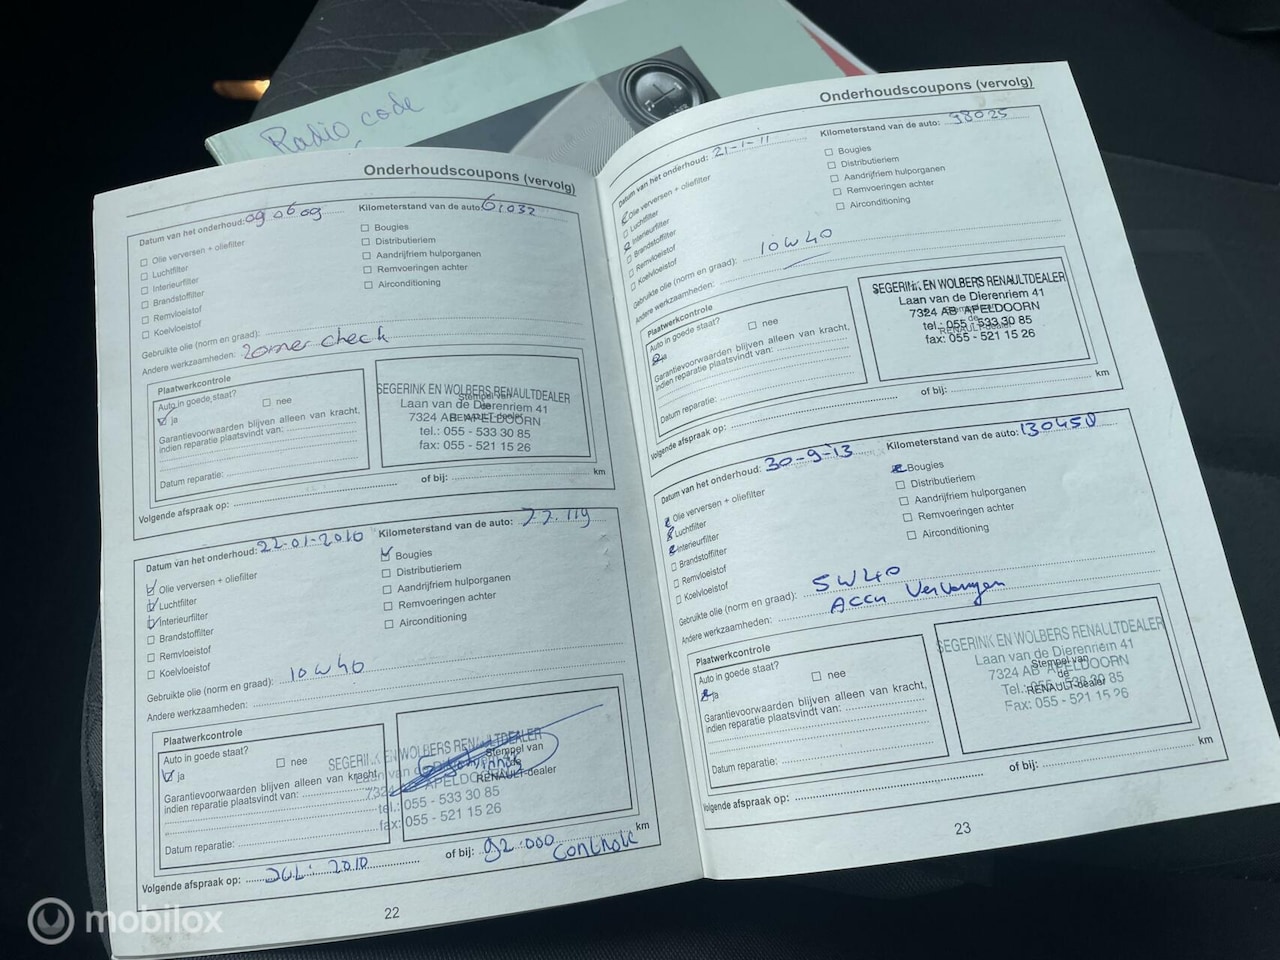 Radio code
Onderhoudscoupons (vervolg)
Datum van het onderhoud: 09 06 09
Kilometerstand van de auto: 61032
Olie verversen + oliefilter
Luchtfilter
Interieurfilter
Brandstoffilter
Remvloeistof
Koelvloeistof
Bougies
Distributieriem
Aandrijfriem hulporganen
Remvoeringen achter
Airconditioning
Gebruikte olie (norm en graad):
Andere werkzaamheden: zomer check
Plaatwerkcontrole
Auto in goede staat?
ja
nee
Garantievoorwaarden blijven alleen van kracht,
indien reparatie plaatsvindt van:
Datum reparatie:
SEGERINK EN WOLBERS RENAULTDEALER
Laan van de Dierenriem 41
7324 AB APELDOORN
tel.: 055 - 533 30 85
fax: 055 - 521 15 26
Stempel van
de
RENAULT-dealer
Volgende afspraak op:
of bij:
km
Datum van het onderhoud: 22-01-2010
Kilometerstand van de auto: 77.119
Olie verversen + oliefilter
Luchtfilter
Interieurfilter
Brandstoffilter
Remvloeistof
Koelvloeistof
Bougies
Distributieriem
Aandrijfriem hulporganen
Remvoeringen achter
Airconditioning
Gebruikte olie (norm en graad): 10W40
Andere werkzaamheden:
Plaatwerkcontrole
Auto in goede staat?
ja
nee
Garantievoorwaarden blijven alleen van kracht,
indien reparatie plaatsvindt van:
Datum reparatie:
SEGERINK EN WOLBERS RENAULTDEALER
Laan van de Dierenriem 41
7324 AB APELDOORN
tel.: 055 - 533 30 85
fax: 055 - 521 15 26
Stempel van
de
RENAULT-dealer
Volgende afspraak op: Juli 2010
of bij: 92.000 km
controle
22
Onderhoudscoupons (vervolg)
Datum van het onderhoud: 21-1-11
Kilometerstand van de auto: 98025
Olie verversen + oliefilter
Luchtfilter
Interieurfilter
Brandstoffilter
Remvloeistof
Koelvloeistof
Bougies
Distributieriem
Aandrijfriem hulporganen
Remvoeringen achter
Airconditioning
Gebruikte olie (norm en graad): 10W40
Andere werkzaamheden:
Plaatwerkcontrole
Auto in goede staat?
ja
nee
Garantievoorwaarden blijven alleen van kracht,
indien reparatie plaatsvindt van:
Datum reparatie:
SEGERINK EN WOLBERS RENAULTDEALER
Laan van de Dierenriem 41
7324 AB APELDOORN
tel.: 055 - 533 30 85
fax: 055 - 521 15 26
Stempel van
de
RENAULT-dealer
Volgende afspraak op:
of bij:
km
Datum van het onderhoud: 30-9-'13
Kilometerstand van de auto: 130450
Olie verversen + oliefilter
Luchtfilter
Interieurfilter
Brandstoffilter
Remvloeistof
Koelvloeistof
Bougies
Distributieriem
Aandrijfriem hulporganen
Remvoeringen achter
Airconditioning
Gebruikte olie (norm en graad): 5W40
Andere werkzaamheden: Accu Vervangen
Plaatwerkcontrole
Auto in goede staat?
ja
nee
Garantievoorwaarden blijven alleen van kracht,
indien reparatie plaatsvindt van:
Datum reparatie:
SEGERINK EN WOLBERS RENAULTDEALER
Laan van de Dierenriem 41
7324 AB APELDOORN
Tel.: 055 - 533 30 85
Fax: 055 - 521 15 26
Stempel van
de
RENAULT-dealer
Volgende afspraak op:
of bij:
km
23
mobilox